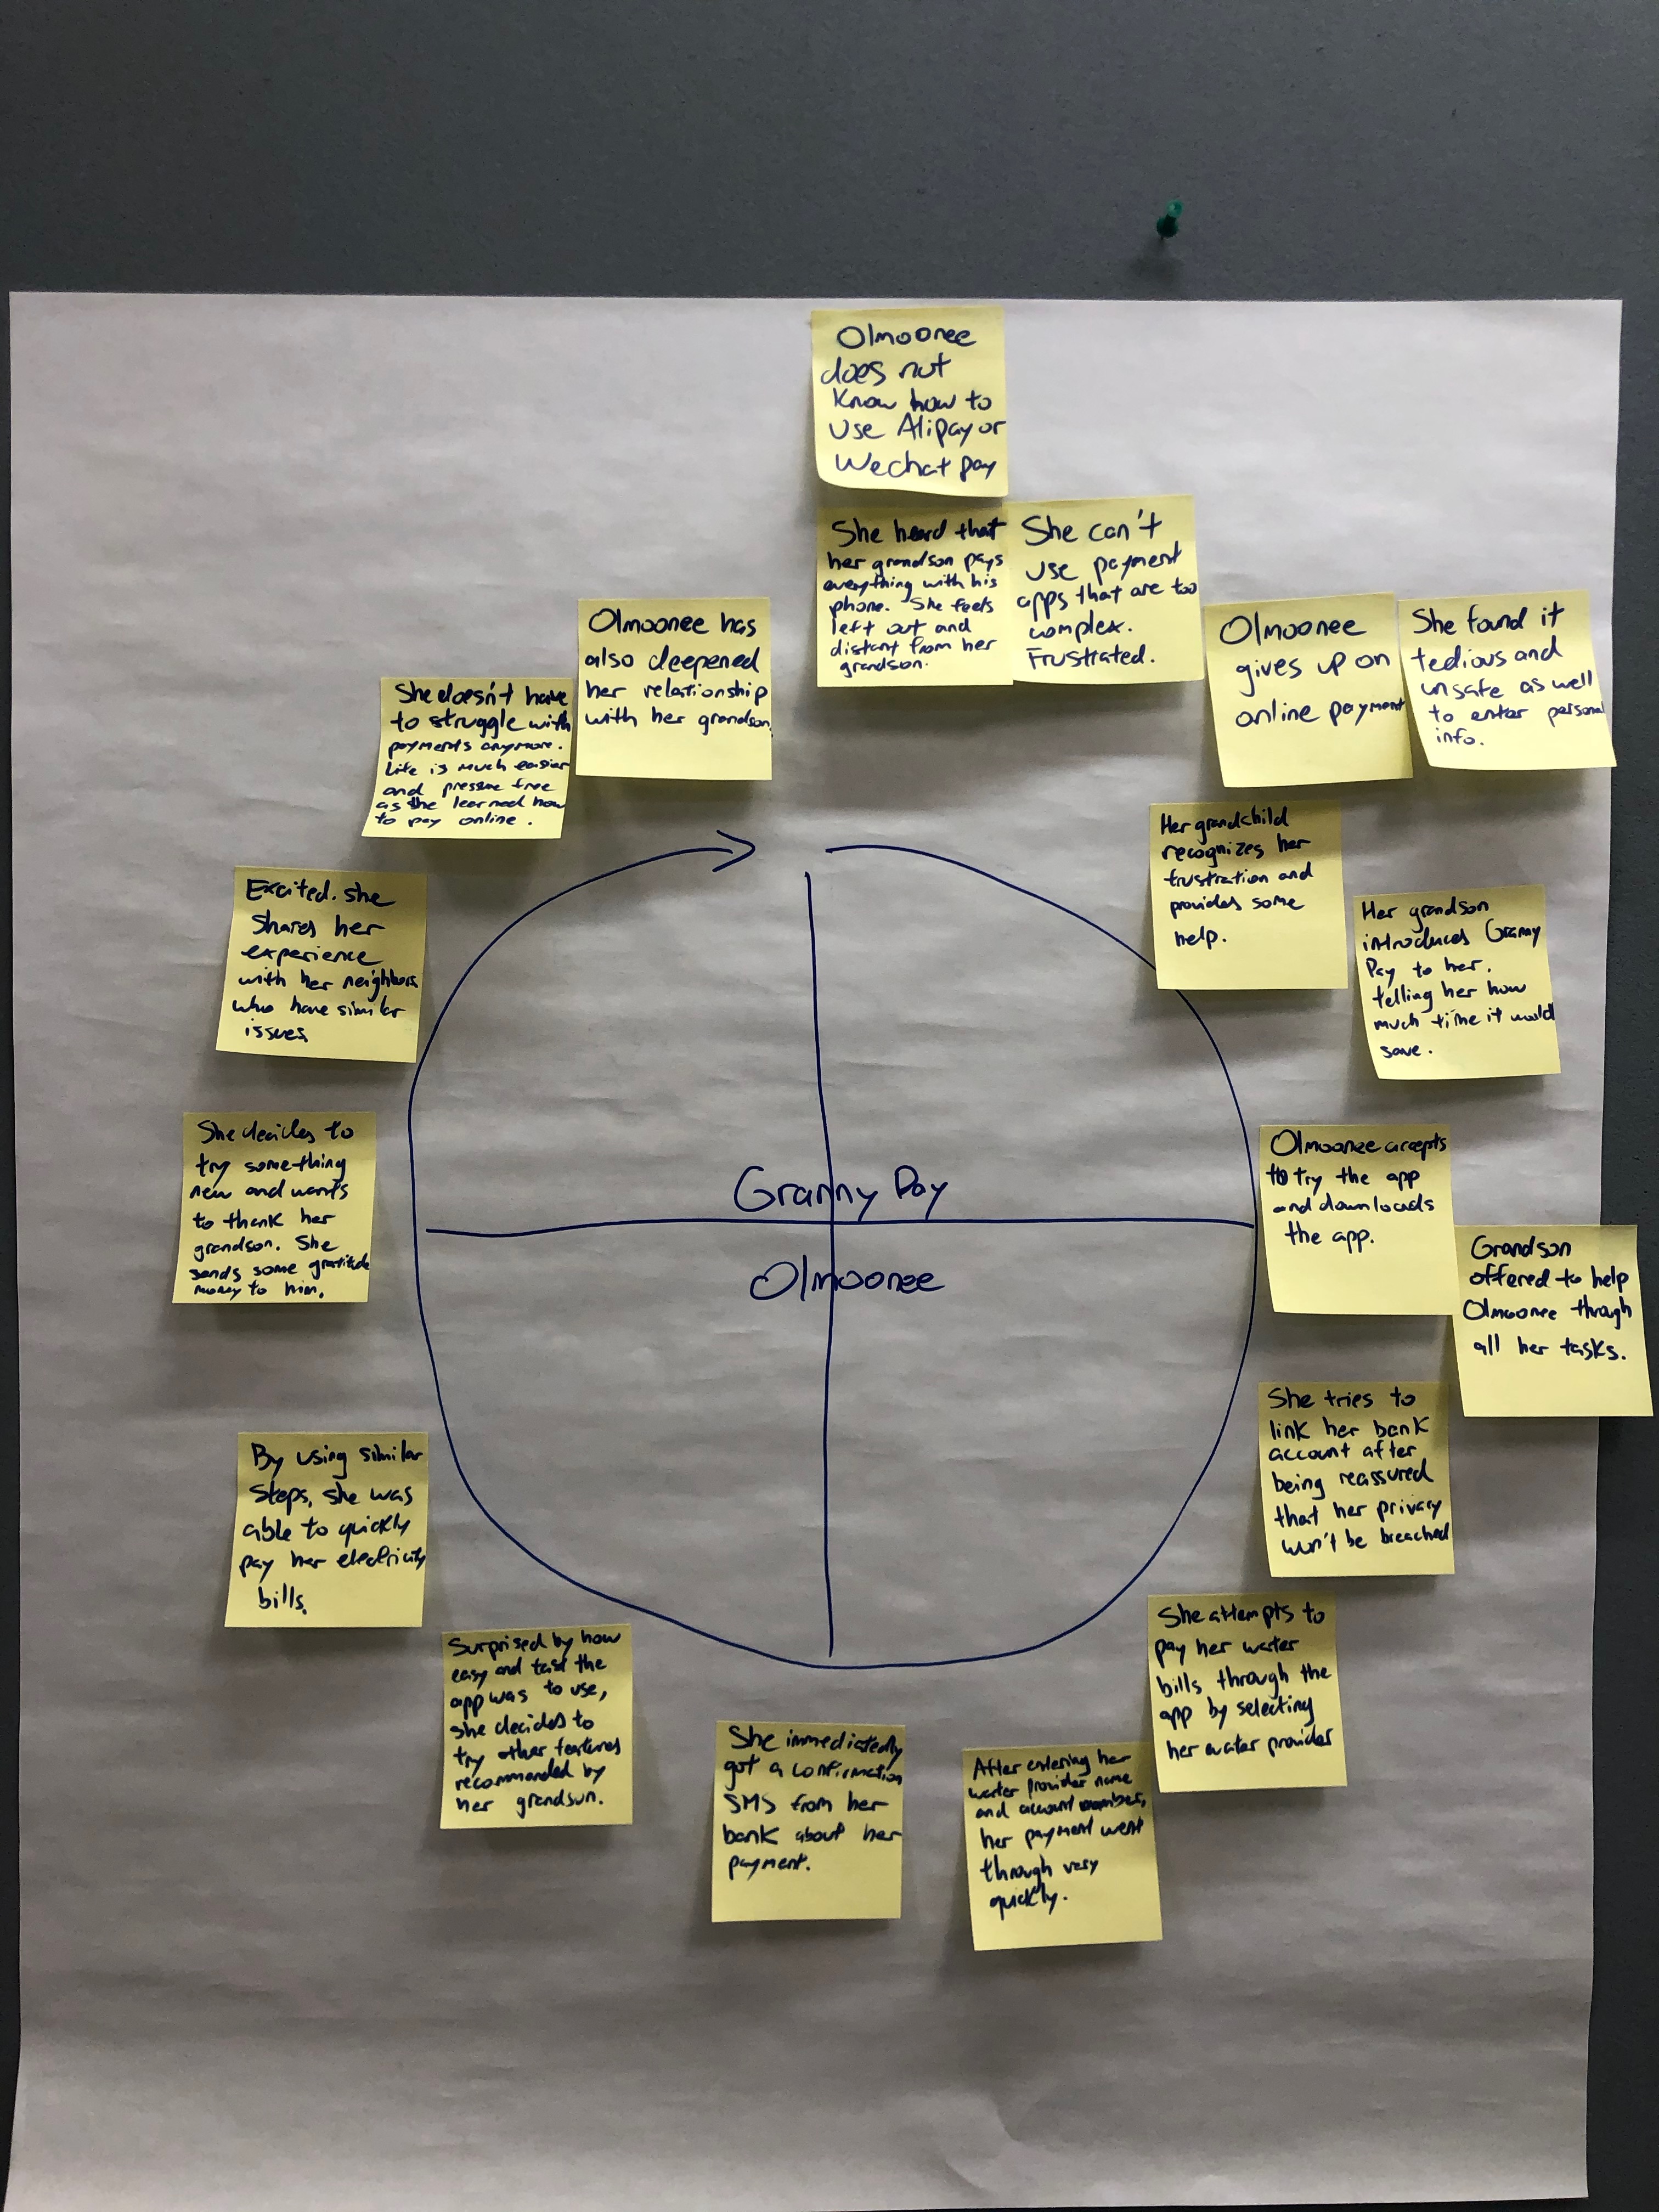 Olmoonee
does not
Know how to
use Alipay or
Wechat pay
She heard that
her grandson pays
everything with his
phone. She feels
left out and
distant from her
grandson.
She can't
use payment
apps that are too
complex.
Frustrated.
Olmoonee
gives up on
online payment
She found it
tedious and
unsafe as well
to enter personal
info.
Her grandchild
recognizes her
frustration and
provides some
help.
Her grandson
introduces Granny
Pay to her.
telling her how
much time it would
save.
Olmoonee accepts
to try the app
and downloads
the app.
Grandson
offered to help
Olmoonee through
all her tasks.
She tries to
link her bank
account after
being reassured
that her privacy
won't be breached
She attempts to
pay her water
bills through the
app by selecting
her water provider
After entering her
water provider name
and account number,
her payment went
through very
quickly.
She immediatedly
got a confirmation
SMS from her
bank about her
payment.
Surprised by how
easy and fast the
app was to use,
she decides to
try other features
recommended by
her grandson.
By using similar
steps, she was
able to quickly
pay her electricity
bills.
She decides to
try something
new and wants
to thank her
grandson. She
sends some gratitude
money to him.
Excited. she
shares her
experience
with her neighbors
who have similar
issues
She doesn't have
to struggle with
payments anymore.
Life is much easier
and pressure free
as she learned how
to pay online.
Olmoonee has
also deepened
her relationship
with her grandson.
Granny Pay
Olmoonee